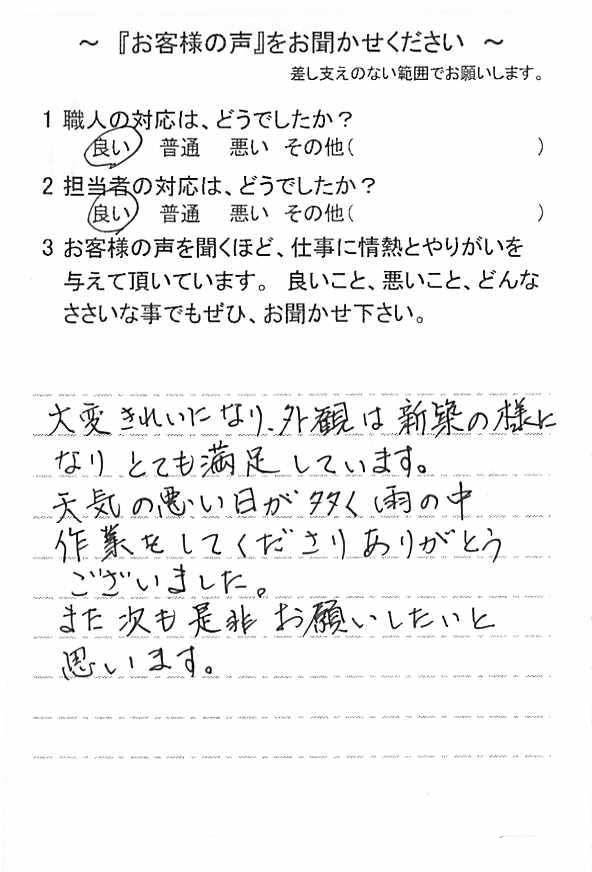 ～ 『お客様の声』をお聞かせください ～
差し支えのない範囲でお願いします。
1 職人の対応は、どうでしたか？
良い 普通 悪い その他( )
2 担当者の対応は、どうでしたか？
良い 普通 悪い その他( )
3 お客様の声を聞くほど、仕事に情熱とやりがいを
与えて頂いています。 良いこと、悪いこと、どんな
ささいな事でもぜひ、お聞かせ下さい。
大変きれいになり、外観は新築の様に
なりとても満足しています。
天気の悪い日が多く雨の中
作業をしてくださりありがとう
ございました。
また次も是非お願いしたいと
思います。